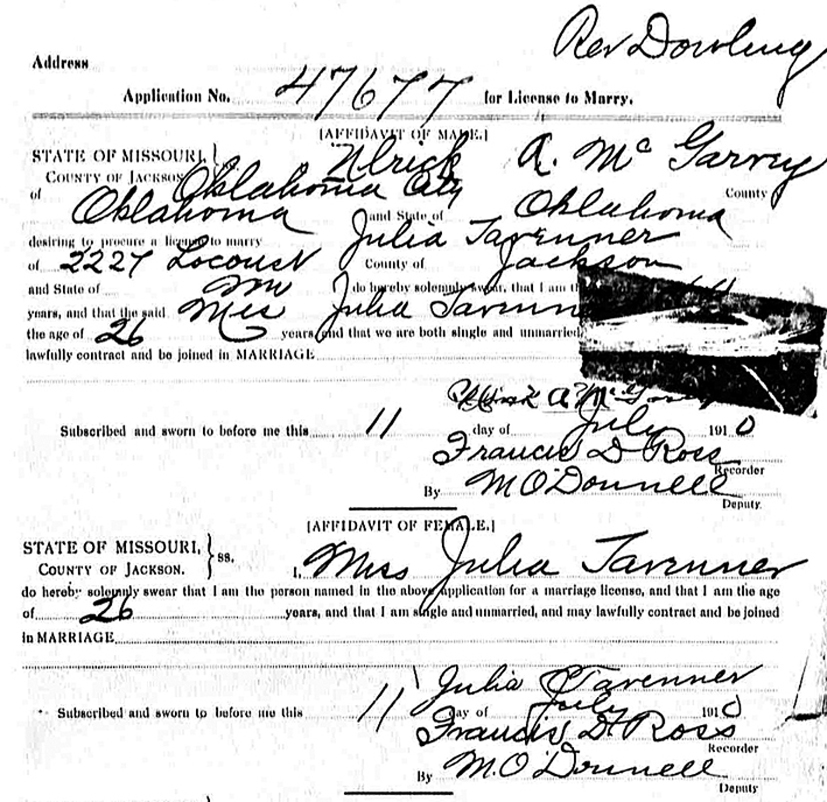 Rev Dowling
Address
Application No. 47677 for License to Marry.
[AFFIDAVIT OF MALE.]
STATE OF MISSOURI, Ulrick A. McGarvey
COUNTY OF JACKSON Oklahoma City County
of Oklahoma and State of Oklahoma
desiring to procure a license to marry Julia Tavenner
of 2227 Locust County of Jackson
and State of Mo do hereby solemnly swear, that I am th
years, and that the said Miss Julia Tavenn
the age of 26 years, and that we are both single and unmarried,
lawfully contract and be joined in MARRIAGE
Ulrick A McGarvey
Subscribed and sworn to before me this 11 day of July 1910
Francis D Ross
Recorder
By M O'Donnell
Deputy.
[AFFIDAVIT OF FEMALE.]
STATE OF MISSOURI, } ss.
COUNTY OF JACKSON. I, Miss Julia Tavenner
do hereby solemnly swear that I am the person named in the above application for a marriage license, and that I am the age
of 26 years, and that I am single and unmarried, and may lawfully contract and be joined
in MARRIAGE
Julia Tavenner
Subscribed and sworn to before me this 11 day of July 1910
Francis D. Ross
Recorder
By M. O'Donnell
Deputy